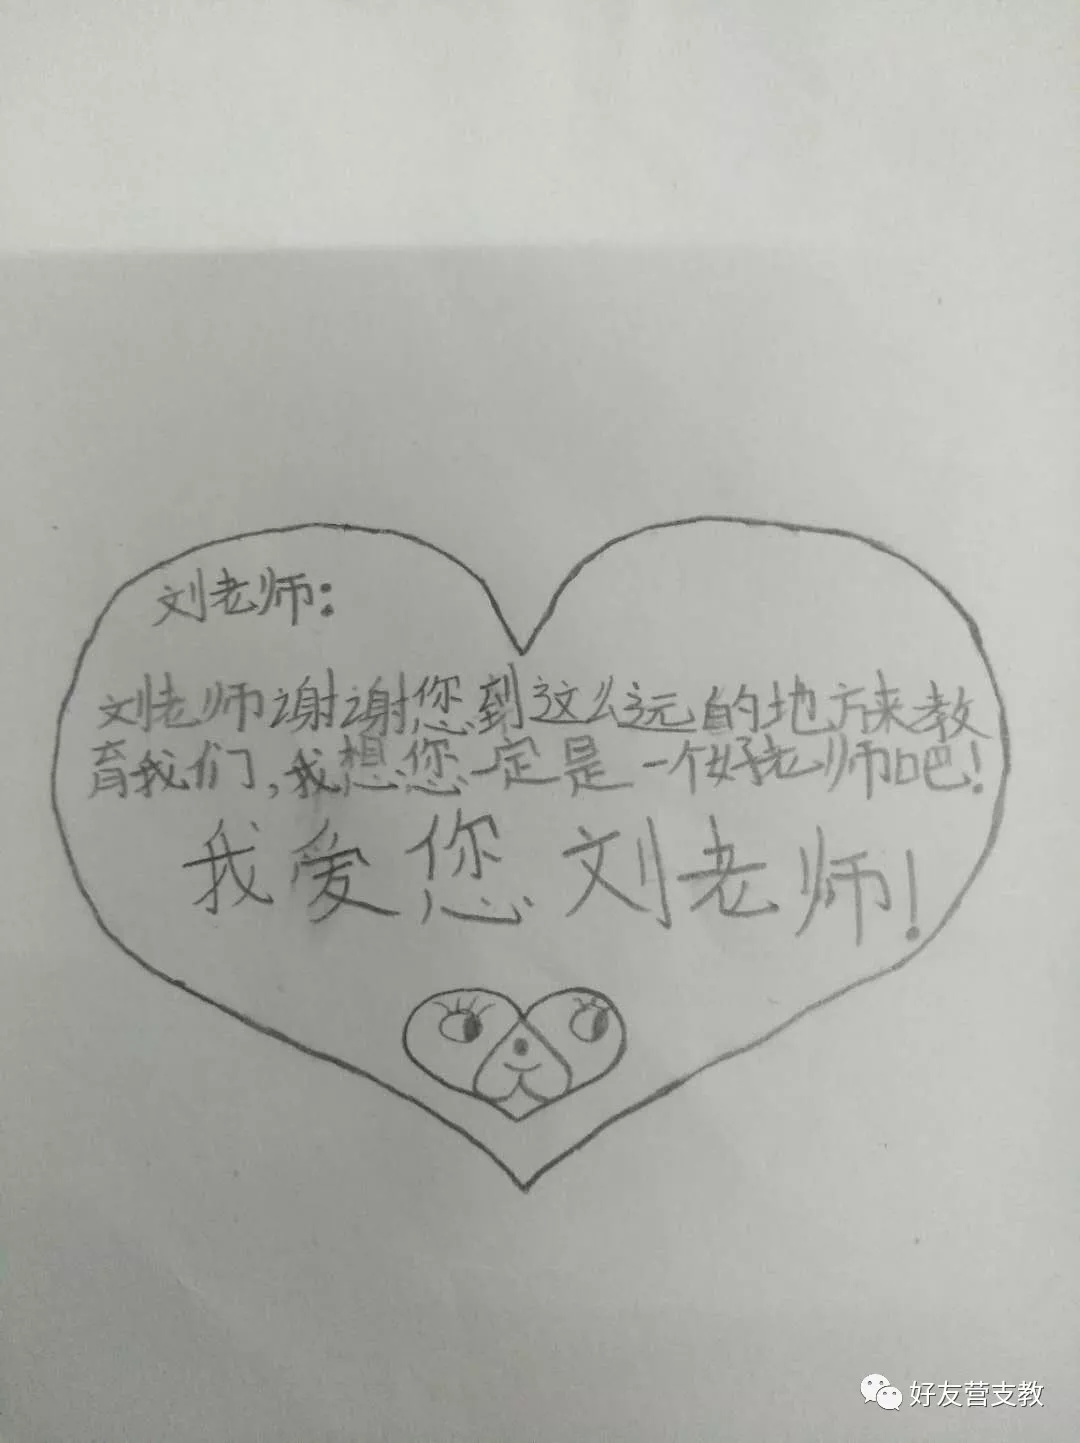 刘老师:
刘老师谢谢您到这么远的地方来教
育我们,我想您一定是一个好老师吧!
我爱您刘老师!
好友营支教